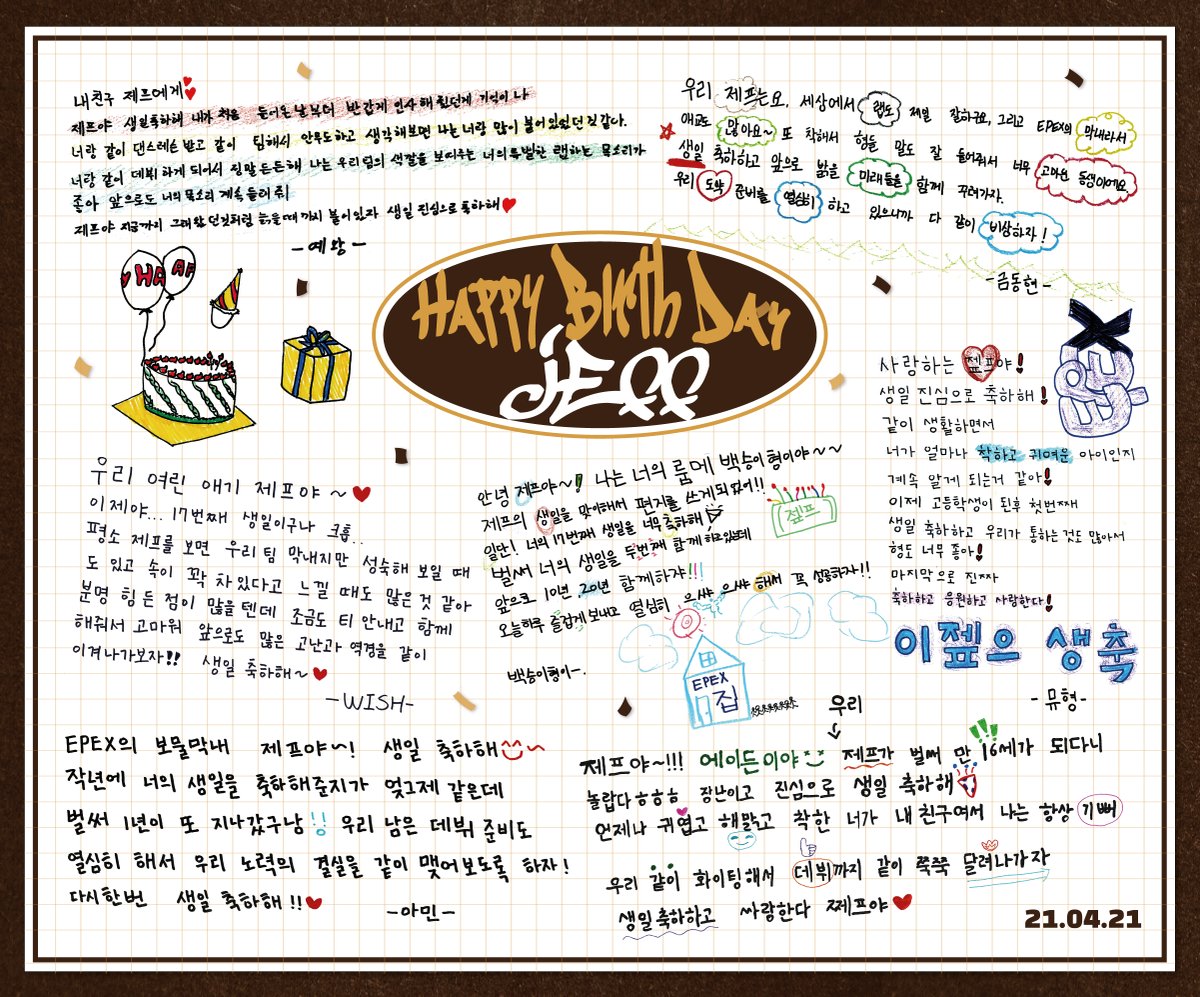 내친구 제프에게
제프야 생일축하해 내가 처음 들어온 날부터 반갑게 인사해 줬던게 기억이 나
너랑 같이 댄스레슨 받고 같이 팀해서 안무도하고 생각해보면 나는 너랑 많이 붙어있었던 것 같아.
너랑 같이 데뷔 하게 되어서 정말 든든해 나는 우리팀의 색깔을 보여주는 너의 특별한 랩하는 목소리가
좋아 앞으로도 너의 목소리 계속 들려줘
제프야 지금까지 그래왔던것처럼 늙을때 까지 붙어있자 생일 진심으로 축하해
-예왕-
우리 제프는요, 세상에서 랩도 제일 잘하구요, 그리고 EPEX의 막내라서
애교도 많아요~ 또 착해서 형들 말도 잘 들어줘서 너무 고마운 동생이에요
생일 축하하고 앞으로 밝은 미래들을 함께 꾸려가자.
우리 도약 준비를 열심히 하고 있으니까 다 같이 비상하자!
-금동현-
HA AP
HAPPY BIRTH DAY
JEFF
사랑하는 젶프야!
생일 진심으로 축하해!
같이 생활하면서
너가 얼마나 착하고 귀여운 아이인지
계속 알게 되는거 같아!
이제 고등학생이 된후 첫번째
생일 축하하고 우리가 통하는것도 많아서
형도 너무 좋아!
마지막으로 진짜
축하하고 응원하고 사랑한다!
이젶으 생축
-뮤형-
우리 여린 애기 제프야~
이제야... 17번째 생일이구나 크흡..
평소 제프를 보면 우리 팀 막내지만 성숙해 보일 때
도 있고 속이 꽉 차있다고 느낄 때도 많은 것 같아
분명 힘든 점이 많을 텐데 조금도 티 안내고 함께
해줘서 고마워 앞으로도 많은 고난과 역경을 같이
이겨나가보자!! 생일 축하해~
-WISH-
안녕 제프야~! 나는 너의 룸메 백송이형이야~~
제프의 생일을 맞이해서 편지를 쓰게되었어!!
일단! 너의 17번째 생일을 너무 축하해!
벌써 너의 생일을 두번째 함께 하고있는데
앞으로 10년, 20년 함께하쟈!!!
오늘하루 즐겁게 보내고 열심히 으쌰 으쌰 해서 꼭 성공하자!!
백송이형이-.
젶프
EPEX
집
EPEX의 보물막내 제프야~! 생일 축하해
작년에 너의 생일을 축하해준지가 엊그제 같은데
벌써 1년이 또 지나갔구나 우리 남은 데뷔 준비도
열심히 해서 우리 노력의 결실을 같이 맺어보도록 하자!
다시한번 생일 축하해!!
-아민-
우리
제프야~!!! 에이든이야 제프가 벌써 만 16세가 되다니
놀랍다ㅎㅎㅎ 장난이고 진심으로 생일 축하해
언제나 귀엽고 해맑고 착한 너가 내 친구여서 나는 항상 기뻐
우리 같이 화이팅해서 데뷔까지 같이 쭉쭉 달려나가자
생일축하하고 싸랑한다 쩨프야
21.04.21